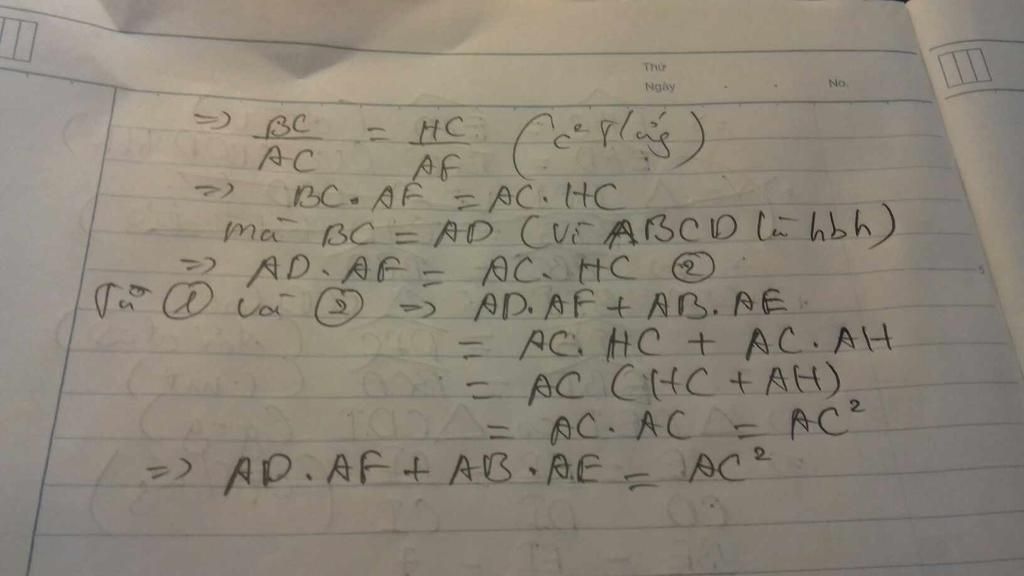 Thứ
Ngày . . No.
=> BC/AC = HC/AF (c² tỉ/ứng)
=> BC . AF = AC . HC
mà BC = AD (Vì ABCD là hbh)
=> AD . AF = AC . HC ②
Từ ① và ② => AD.AF + AB.AE
= AC. HC + AC . AH
= AC (HC + AH)
= AC . AC = AC²
=> AD . AF + AB . AE = AC²